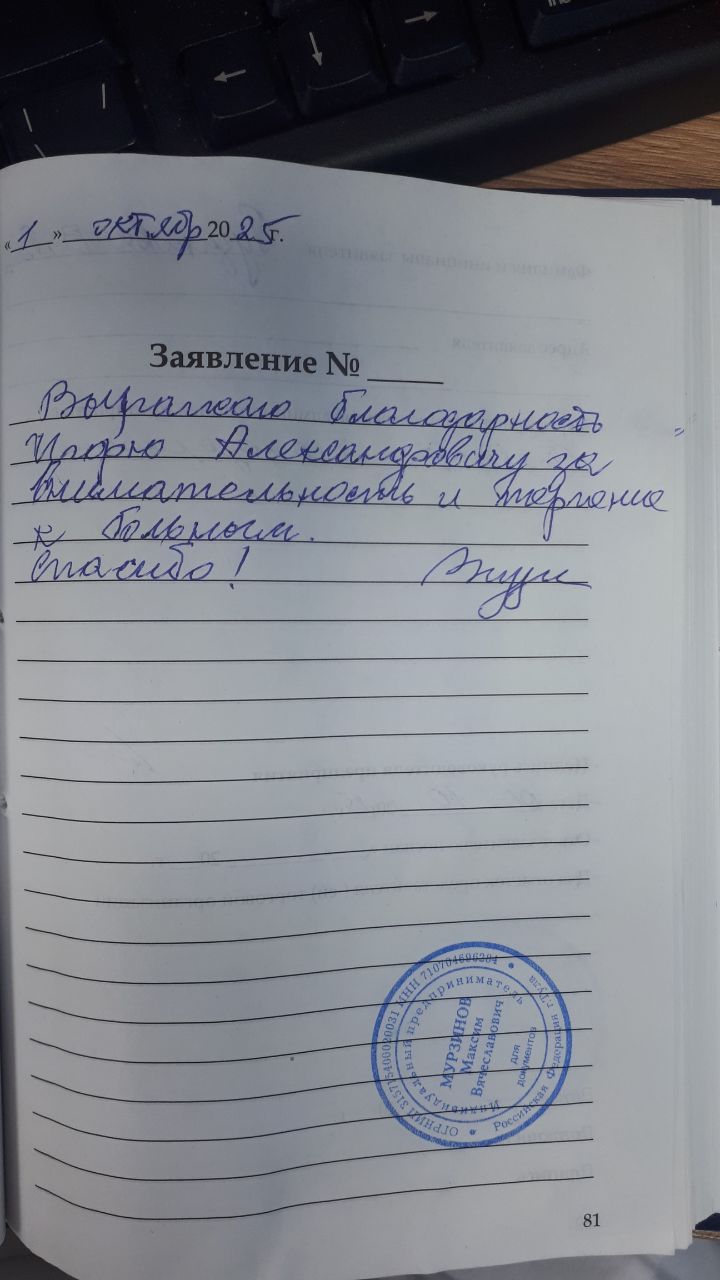 «1» октябр 2025г.
Заявление № ____
Выражаю благодарность
Игорю Александровичу за
внимательность и терпение
к больным.
Спасибо!
ОГРНИП 315715400020031 ИНН 710704696384
Индивидуальный предприниматель
МУРЗИНОВ
Максим
Вячеславович
для
документов
Российская Федерация г.Тула
81